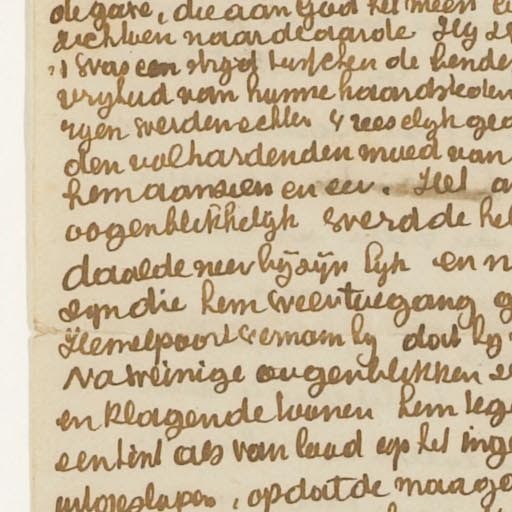 de gave, die aan God het meest
richtten naar de aarde Hy
't was een stryd tusschen de bende
vryheid van hunne haardsteden
ryen werden echter vreeselyk
den volhardenden moed van
hem aanzien en eer. Het
oogenblikkelyk werd de
daalde neer by zyn lyk en
zyn die hem weer toegang
Hemelpoort vernam hy dat hy
Na weinige oogenblikken
en klagende toonen hem
een tint als van lood op het
uitgeslapen, opdat de maag